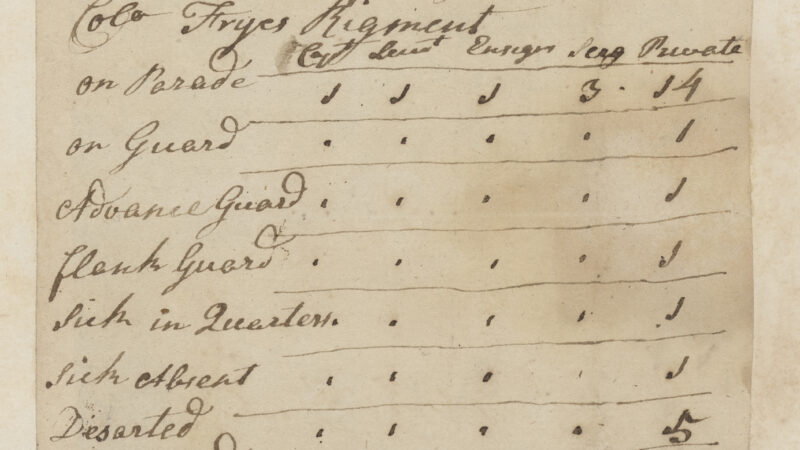 Colo Fryes Rigment
Capt Leiut Ensign Serg Private
on Parade 1 1 1 3 14
on Guard . . . . 1
Advance Guard . . . . 1
flank Guard . . . . 1
Sick in Quarters . . . . 1
Sick Absent . . . . 1
Desarted . . . . 5